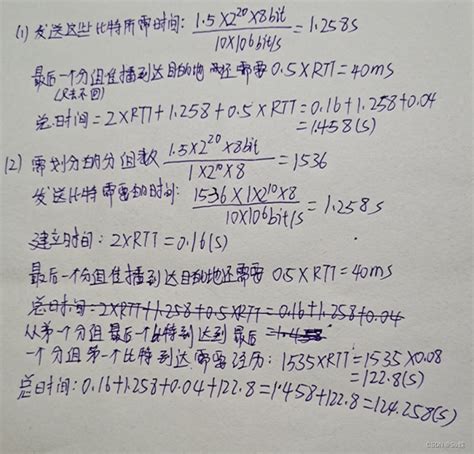 (1) 发送这些比特所需时间: 1.5×2²⁰×8bit / 10×10⁶bit/s = 1.258s
最后一个分组传播到达目的地还需要 0.5×RTT=40ms
(只去不回)
总时间=2×RTT+1.258+0.5×RTT=0.16+1.258+0.04
=1.458(s)
(2) 需划分的分组数 1.5×2²⁰×8bit / 1×2¹⁰×8 = 1536
发送比特需要的时间: 1536×1×2¹⁰×8 / 10×10⁶bit/s = 1.258s
建立时间: 2×RTT=0.16(s)
最后一个分组传播到达目的地还需要 0.5×RTT=40ms
总时间=2×RTT+1.258+0.5×RTT=0.16+1.258+0.04
=1.458
从第一个分组最后一个比特到达到最后
一个分组第一个比特到达需要经历: 1535×RTT=1535×0.08
=122.8(s)
总时间: 0.16+1.258+0.04+122.8=1.458+122.8=124.258(s)